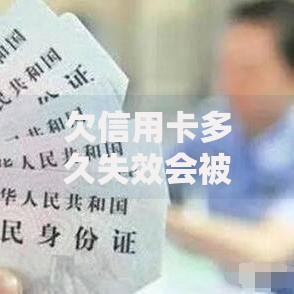 和国
民共和国
份证
欠信用卡多
久失效会被
人民共和国
华人民共和国
民身份证